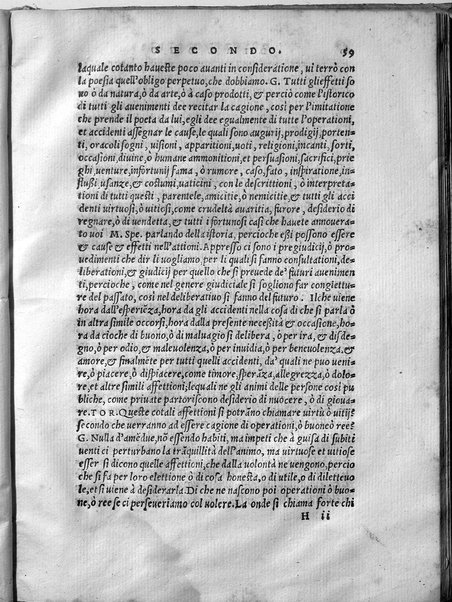 SECONDO. 59
laquale cotanto haueste poco auanti in consideratione, ui terrò con
la poesia quell'obligo perpetuo, che dobbiamo. G. Tutti gli effetti so
no ò da natura, ò da arte, ò à caso prodotti, & perciò come l'istorico
di tutti gli auenimenti dee recitar la cagione, così per l'imitatione
che prende il poeta da lui, egli dee egualmente di tutte l'operationi,
et accidenti assegnar le cause, le quali sono augurij, prodigij, porten-
ti, oracoli sogni, uisioni, apparitioni, uoti, religioni, incanti, sorti,
occasioni, diuine, ò humane ammonitioni, et persuasioni, sacrifici, prie
ghi, uenture, infortunij fama, ò rumore, caso, fato, inspiratione, in-
flussi, usanze, & costumi, uaticini, con le descrittioni, ò interpreta-
tioni di tutti questi, parentele, amicitie, ò nemicitie, & tutti gli acci
denti uirtuosi, ò uitiosi, come crudeltà auaritia, furore, desiderio di
regnare, ò di uendetta, & tutti i fortunosi casi che hauete annouera-
to uoi M. Spe. parlando della istoria, percioche essi possono essere
& cause & effetti nell'attioni. Appresso ci sono i pregiudicij, ò pro-
uedimenti che dir li uogliamo per li quali si fanno consultationi, de-
liberationi, & giudicij per quello che si preuede de' futuri auenimen
ti, percioche, come nel genere giudiciale si sogliono far congiettu-
re del passato, così nel deliberatiuo si fanno del futuro. Ilche uiene
hora dall'esperiẽza, hora da gli accidenti nella cosa di che si parla ò
in altra simile occorsi, hora dalla presente necessità & occasione, ho-
ra da cioche di buono, ò di maluagio si delibera, ò per ira, & disde-
gno, ò per odio, & maleuolenza, ò per inuidia, ò per beneuolenza, &
amore, & finalmẽte per tutti quelli accidenti, da' quali ne puo ueni-
re, ò piacere, ò dispiacere, come timore, sperãza, allegrezza, ò dolo-
re, et altre simili affettioni; lequali ne gli animi delle persone cosi pu
bliche, come private partoriscono desiderio di nuocere, ò di gioua-
re. TOR. Queste cotali affettioni si potrãno chiamare uirtù ò uitij?
secondo che uerranno ad essere cagione di operationi, ò buone ò ree?
G. Nulla d'amẽdue, nõ essendo habiti, ma impeti che à guisa di subiti
uenti ci perturbano la trãquillità dell'animo, ma uirtuose et uitiose
esser si dicono quelle affettioni, che dalla volontà ne uengono, percio
che si fa per loro elettione ò di cosa honesta, ò di utile, ò di diletteuo
le, et si uiene à desiderarla. Di che ne nascono poi operationi ò buo-
ne, ò ree se ci perseueriamo col uolere. La onde si chiama forte chi
H ii